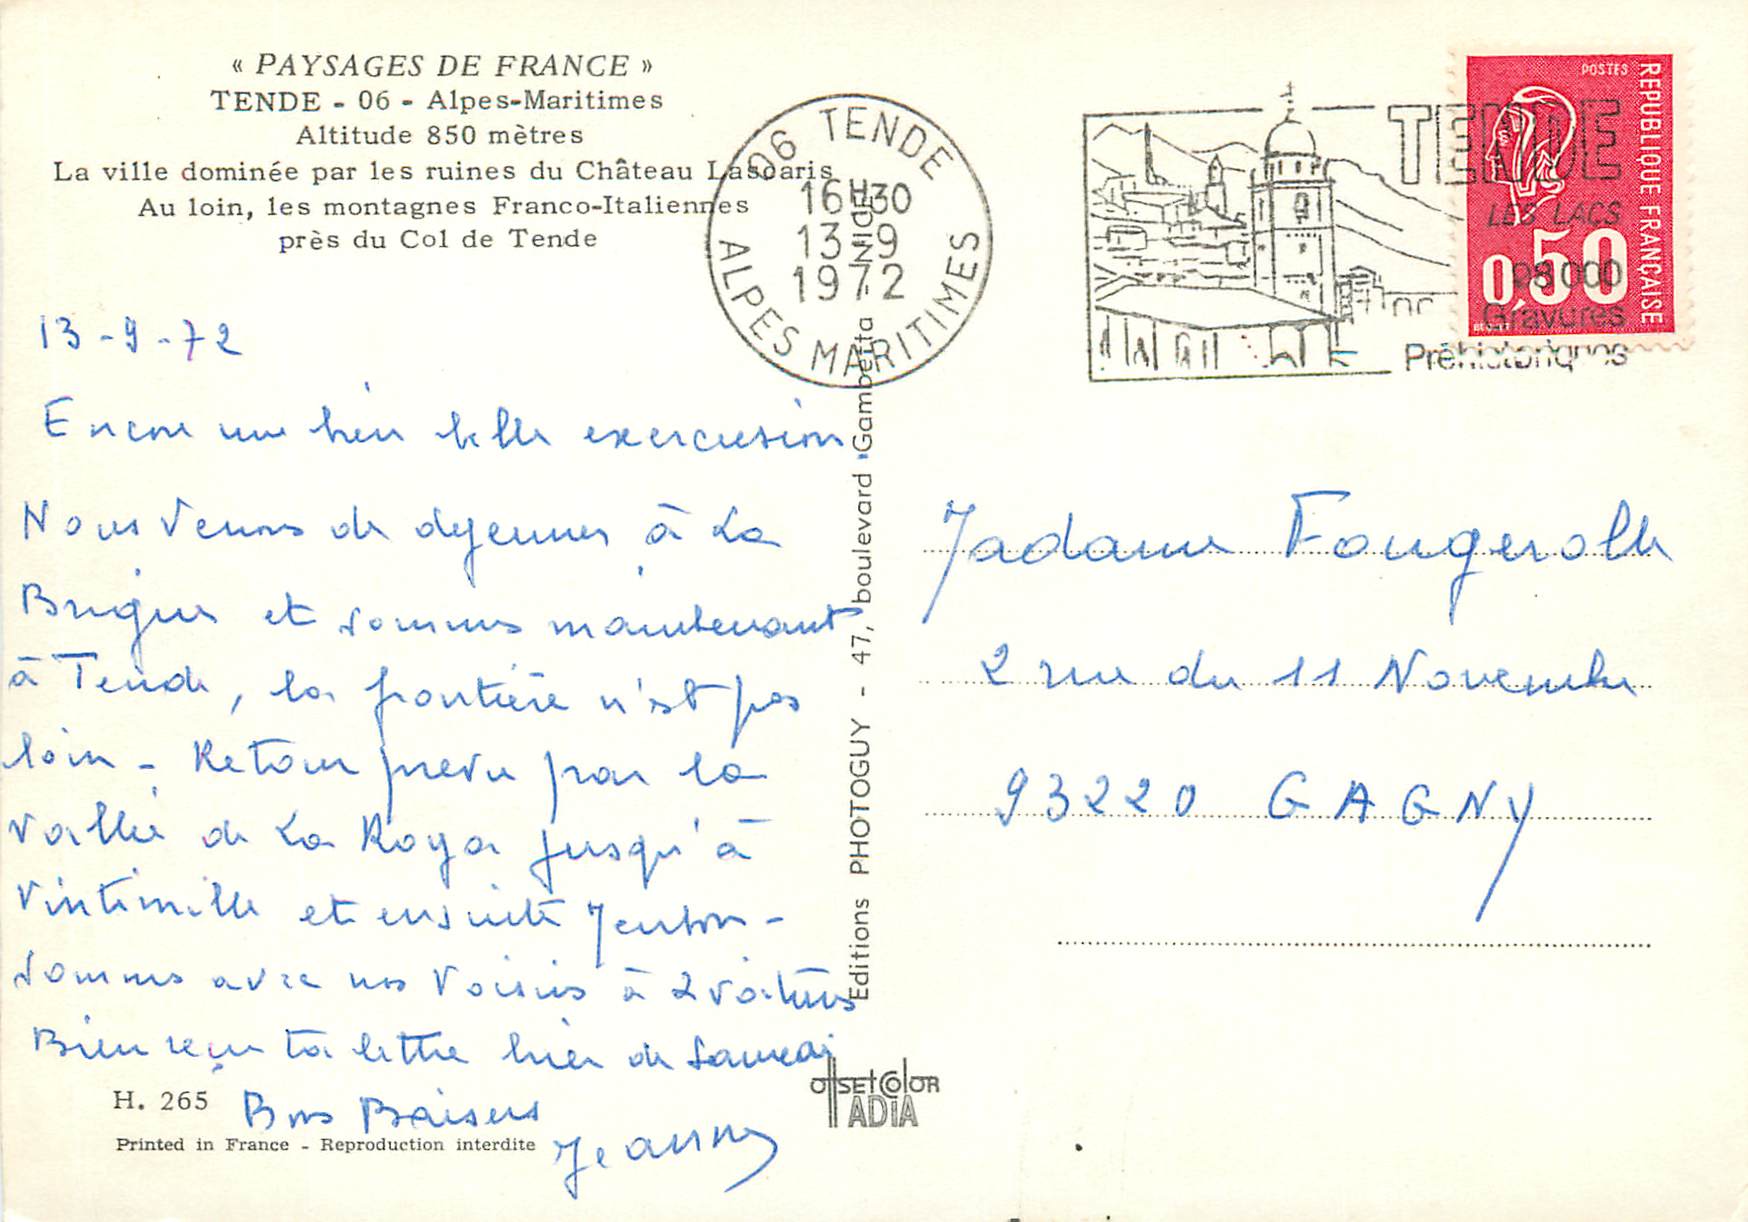 « PAYSAGES DE FRANCE »
TENDE - 06 - Alpes-Maritimes
Altitude 850 mètres
La ville dominée par les ruines du Château Lascaris
Au loin, les montagnes Franco-Italiennes
près du Col de Tende
13-9-72
Encore une bien belle excercusion.
Nous venons de dejeuner à La
Brigue et sommes maintenant
à Tende, la frontière n'est pas
loin - Retour prevu par la
vallée de La Roya jusqu'à
Vintimille et ensuite Menton -
Sommes avec nos voisins à 2 voitures
Bien reçu ta lettre hier de Samedi
Bons Baisers
Jeanne
H. 265
Printed in France - Reproduction interdite
Editions PHOTOGUY - 47, boulevard Gambetta - NICE
OFFSET COLOR
ADIA
06 TENDE
16H30
13-9
1972
ALPES MARITIMES
TENDE
LES LACS
Gravures
Préhistoriques
POSTES
REPUBLIQUE FRANÇAISE
0,50
BEQUET
Madame Fougerolle
2 rue du 11 Novembre
93220 GAGNY